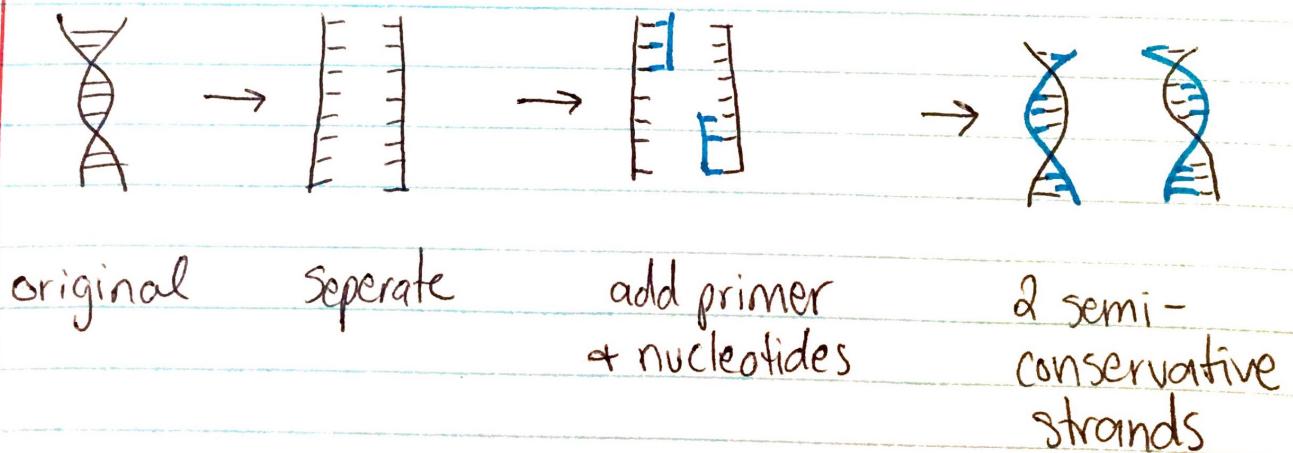 original
seperate
add primer
& nucleotides
2 semi-
conservative
strands